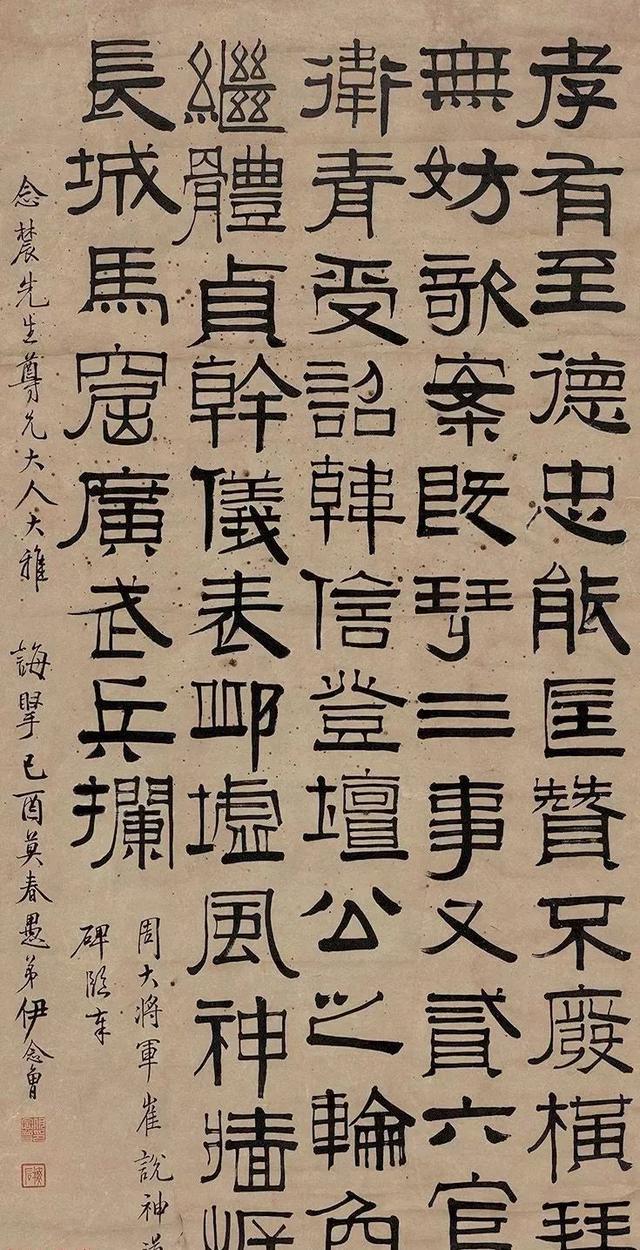 孝有至德忠能匡贊不廢橫琴
無妨歌案既琴三事又貳六官
衛青受詔韓信登壇公之輪
繼體貞幹儀表邱墟風神牆岸
長城馬窟廣武兵攔
周大將軍崔說神道
碑臨奉
念農先生尊兄大人大雅 誨 己酉莫春愚弟伊念曾